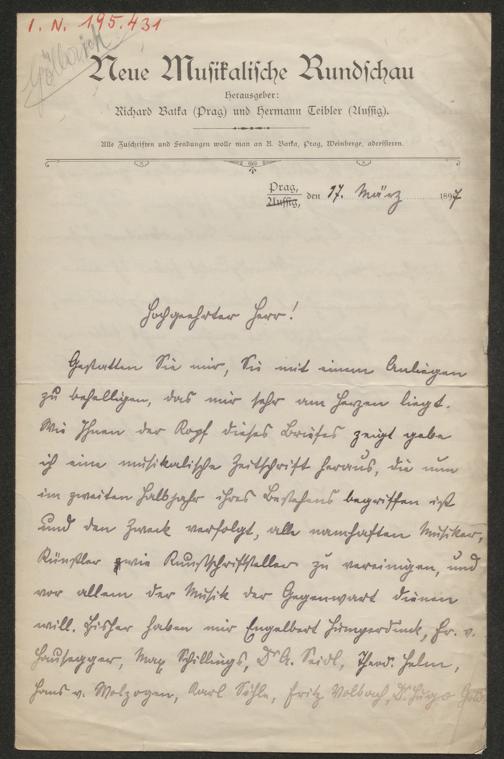 I. N. 195.431
Neue Musikalische Rundschau
Herausgeber:
Richard Batka (Prag) und Hermann Teibler (Aussig).
Alle Zuschriften und Sendungen wolle man an R. Batka, Prag, Weinberge, adressieren.
Prag,
Aussig, den 17. März 1897
Hochgeehrter Herr!
Gestatten Sie mir, Sie mit einem Anliegen
zu behelligen, das mir sehr am Herzen liegt.
Wie Ihnen der Kopf dieses Briefes zeigt gebe
ich eine musikalische Zeitschrift heraus, die nun
im zweiten Halbjahr ihres Bestehens begriffen ist
und den Zweck verfolgt, alle namhaften Musiker,
Künstler wie Kunstschriftsteller zu vereinigen, und
vor allem der Musik der Gegenwart dienen
will. Bisher haben mir Engelbert Humperdinck, Fr. v.
Hausegger, Max Schillings, Dr A. Seidl, Theod. Helm,
Hans v. Wolzogen, Karl Söhle, Fritz Volbach, Dr. Hugo